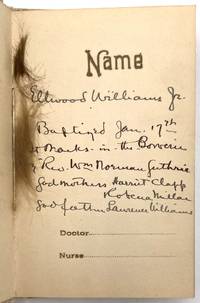 Name
Ellwood Williams Jr.
Baptized Jan. 17th
St Marks-in-the Bowerie
by Rev. Wm Norman Guthrie
God mothers Harriet Clapp
Millar
God father Laurence Williams
Doctor
Nurse